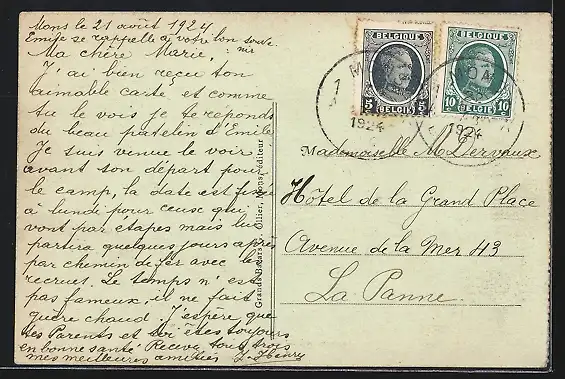 Mons le 21 août 1924
Emile se rappelle à votre bon souve
nir
Ma chère Marie,
J'ai bien reçu ton
aimable carte et comme
tu le vois je te réponds
du beau patelin d'Emile
Je suis venue le voir
avant son départ pour
le camp, la date est fixée
à lundi pour ceux qui
vont par étapes mais lui
partira quelques jours après
par chemin de fer avec les
recrues. Le temps n'est
pas fameux, il ne fait
guère chaud. J'espère que
tes Parents et toi êtes toujours
en bonne santé Recevez tous trois
mes meilleures amitiés J. Henry
Grands Bazars Ollier, Mons, éditeur
BELGIQUE
5 5
BELGIË
BELGIQUE
10 10
BELGIË
1924
1924
Mademoiselle M. Dervaux
Hôtel de la Grand Place
Avenue de la Mer 43
La Panne